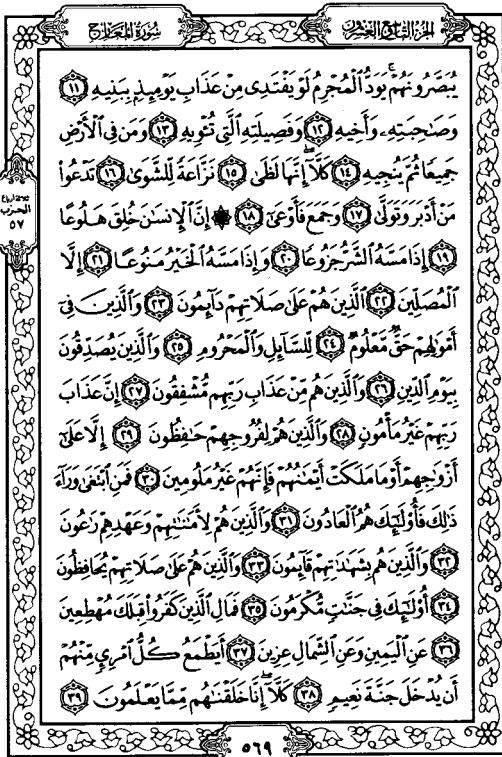 الجزء التاسع والعشرون
سورة المعارج
يُبَصَّرُونَهُمْ ۚ يَوَدُّ ٱلْمُجْرِمُ لَوْ يَفْتَدِى مِنْ عَذَابِ يَوْمِئِذٍۭ بِبَنِيهِ ١١
وَصَٰحِبَتِهِۦ وَأَخِيهِ ١٢ وَفَصِيلَتِهِ ٱلَّتِى تُـْٔوِيهِ ١٣ وَمَن فِى ٱلْأَرْضِ
جَمِيعًا ثُمَّ يُنجِيهِ ١٤ كَلَّآ ۖ إِنَّهَا لَظَىٰ ١٥ نَزَّاعَةً لِّلشَّوَىٰ ١٦ تَدْعُوا۟
مَنْ أَدْبَرَ وَتَوَلَّىٰ ١٧ وَجَمَعَ فَأَوْعَىٰٓ ١٨ ۞ إِنَّ ٱلْإِنسَٰنَ خُلِقَ هَلُوعًا
١٩ إِذَا مَسَّهُ ٱلشَّرُّ جَزُوعًا ٢٠ وَإِذَا مَسَّهُ ٱلْخَيْرُ مَنُوعًا ٢١ إِلَّا
ٱلْمُصَلِّينَ ٢٢ ٱلَّذِينَ هُمْ عَلَىٰ صَلَاتِهِمْ دَآئِمُونَ ٢٣ وَٱلَّذِينَ فِىٓ
أَمْوَٰلِهِمْ حَقٌّ مَّعْلُومٌ ٢٤ لِّلسَّآئِلِ وَٱلْمَحْرُومِ ٢٥ وَٱلَّذِينَ يُصَدِّقُونَ
بِيَوْمِ ٱلدِّينِ ٢٦ وَٱلَّذِينَ هُم مِّنْ عَذَابِ رَبِّهِم مُّشْفِقُونَ ٢٧ إِنَّ عَذَابَ
رَبِّهِمْ غَيْرُ مَأْمُونٍ ٢٨ وَٱلَّذِينَ هُمْ لِفُرُوجِهِمْ حَٰفِظُونَ ٢٩ إِلَّا عَلَىٰٓ
أَزْوَٰجِهِمْ أَوْ مَا مَلَكَتْ أَيْمَٰنُهُمْ فَإِنَّهُمْ غَيْرُ مَلُومِينَ ٣٠ فَمَنِ ٱبْتَغَىٰ وَرَآءَ
ذَٰلِكَ فَأُو۟لَٰٓئِكَ هُمُ ٱلْعَادُونَ ٣١ وَٱلَّذِينَ هُمْ لِأَمَٰنَٰتِهِمْ وَعَهْدِهِمْ رَٰعُونَ
٣٢ وَٱلَّذِينَ هُم بِشَهَٰدَٰتِهِمْ قَآئِمُونَ ٣٣ وَٱلَّذِينَ هُمْ عَلَىٰ صَلَاتِهِمْ يُحَافِظُونَ
٣٤ أُو۟لَٰٓئِكَ فِى جَنَّٰتٍ مُّكْرَمُونَ ٣٥ فَمَالِ ٱلَّذِينَ كَفَرُوا۟ قِبَلَكَ مُهْطِعِينَ
٣٦ عَنِ ٱلْيَمِينِ وَعَنِ ٱلشِّمَالِ عِزِينَ ٣٧ أَيَطْمَعُ كُلُّ ٱمْرِئٍ مِّنْهُمْ
أَن يُدْخَلَ جَنَّةَ نَعِيمٍ ٣٨ كَلَّآ ۖ إِنَّا خَلَقْنَٰهُم مِّمَّا يَعْلَمُونَ ٣٩
الحزب
٥٧
٥٦٩